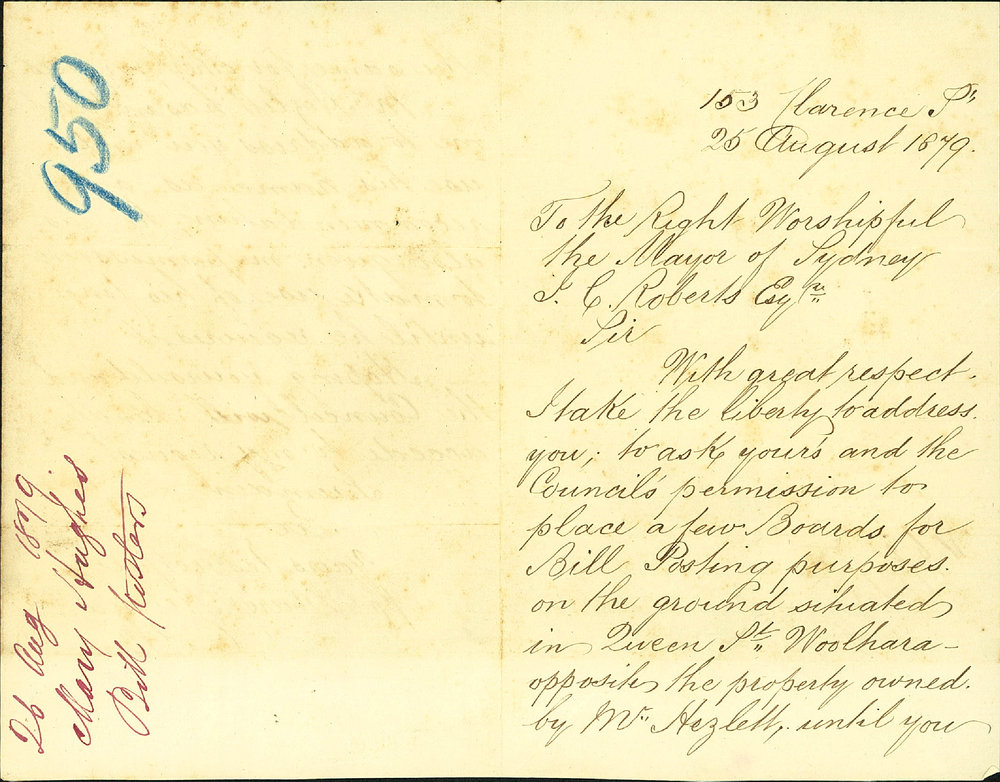 950
26 Aug 1879
Mary Hughes
Bill Posters
153 Clarence St
25 August 1879.
To the Right Worshipful
the Mayor of Sydney
J. C. Roberts Esqr
Sir
With great respect.
I take the liberty to address.
you; to ask, your's and the
Council's permission to
place a few Boards for
Bill Posting purposes.
on the ground situated
in Queen St. Woolhara -
opposite the property owned.
by Mr. Hezlett, until you